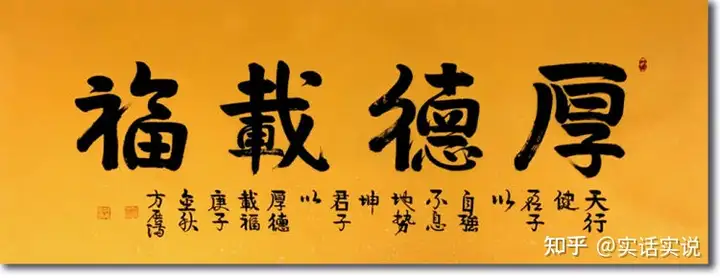 厚德載福
天行
健
君子
以
自強
不息
地勢
坤
君子
以
厚德
載福
庚子
金秋
方
知乎 @实话实说